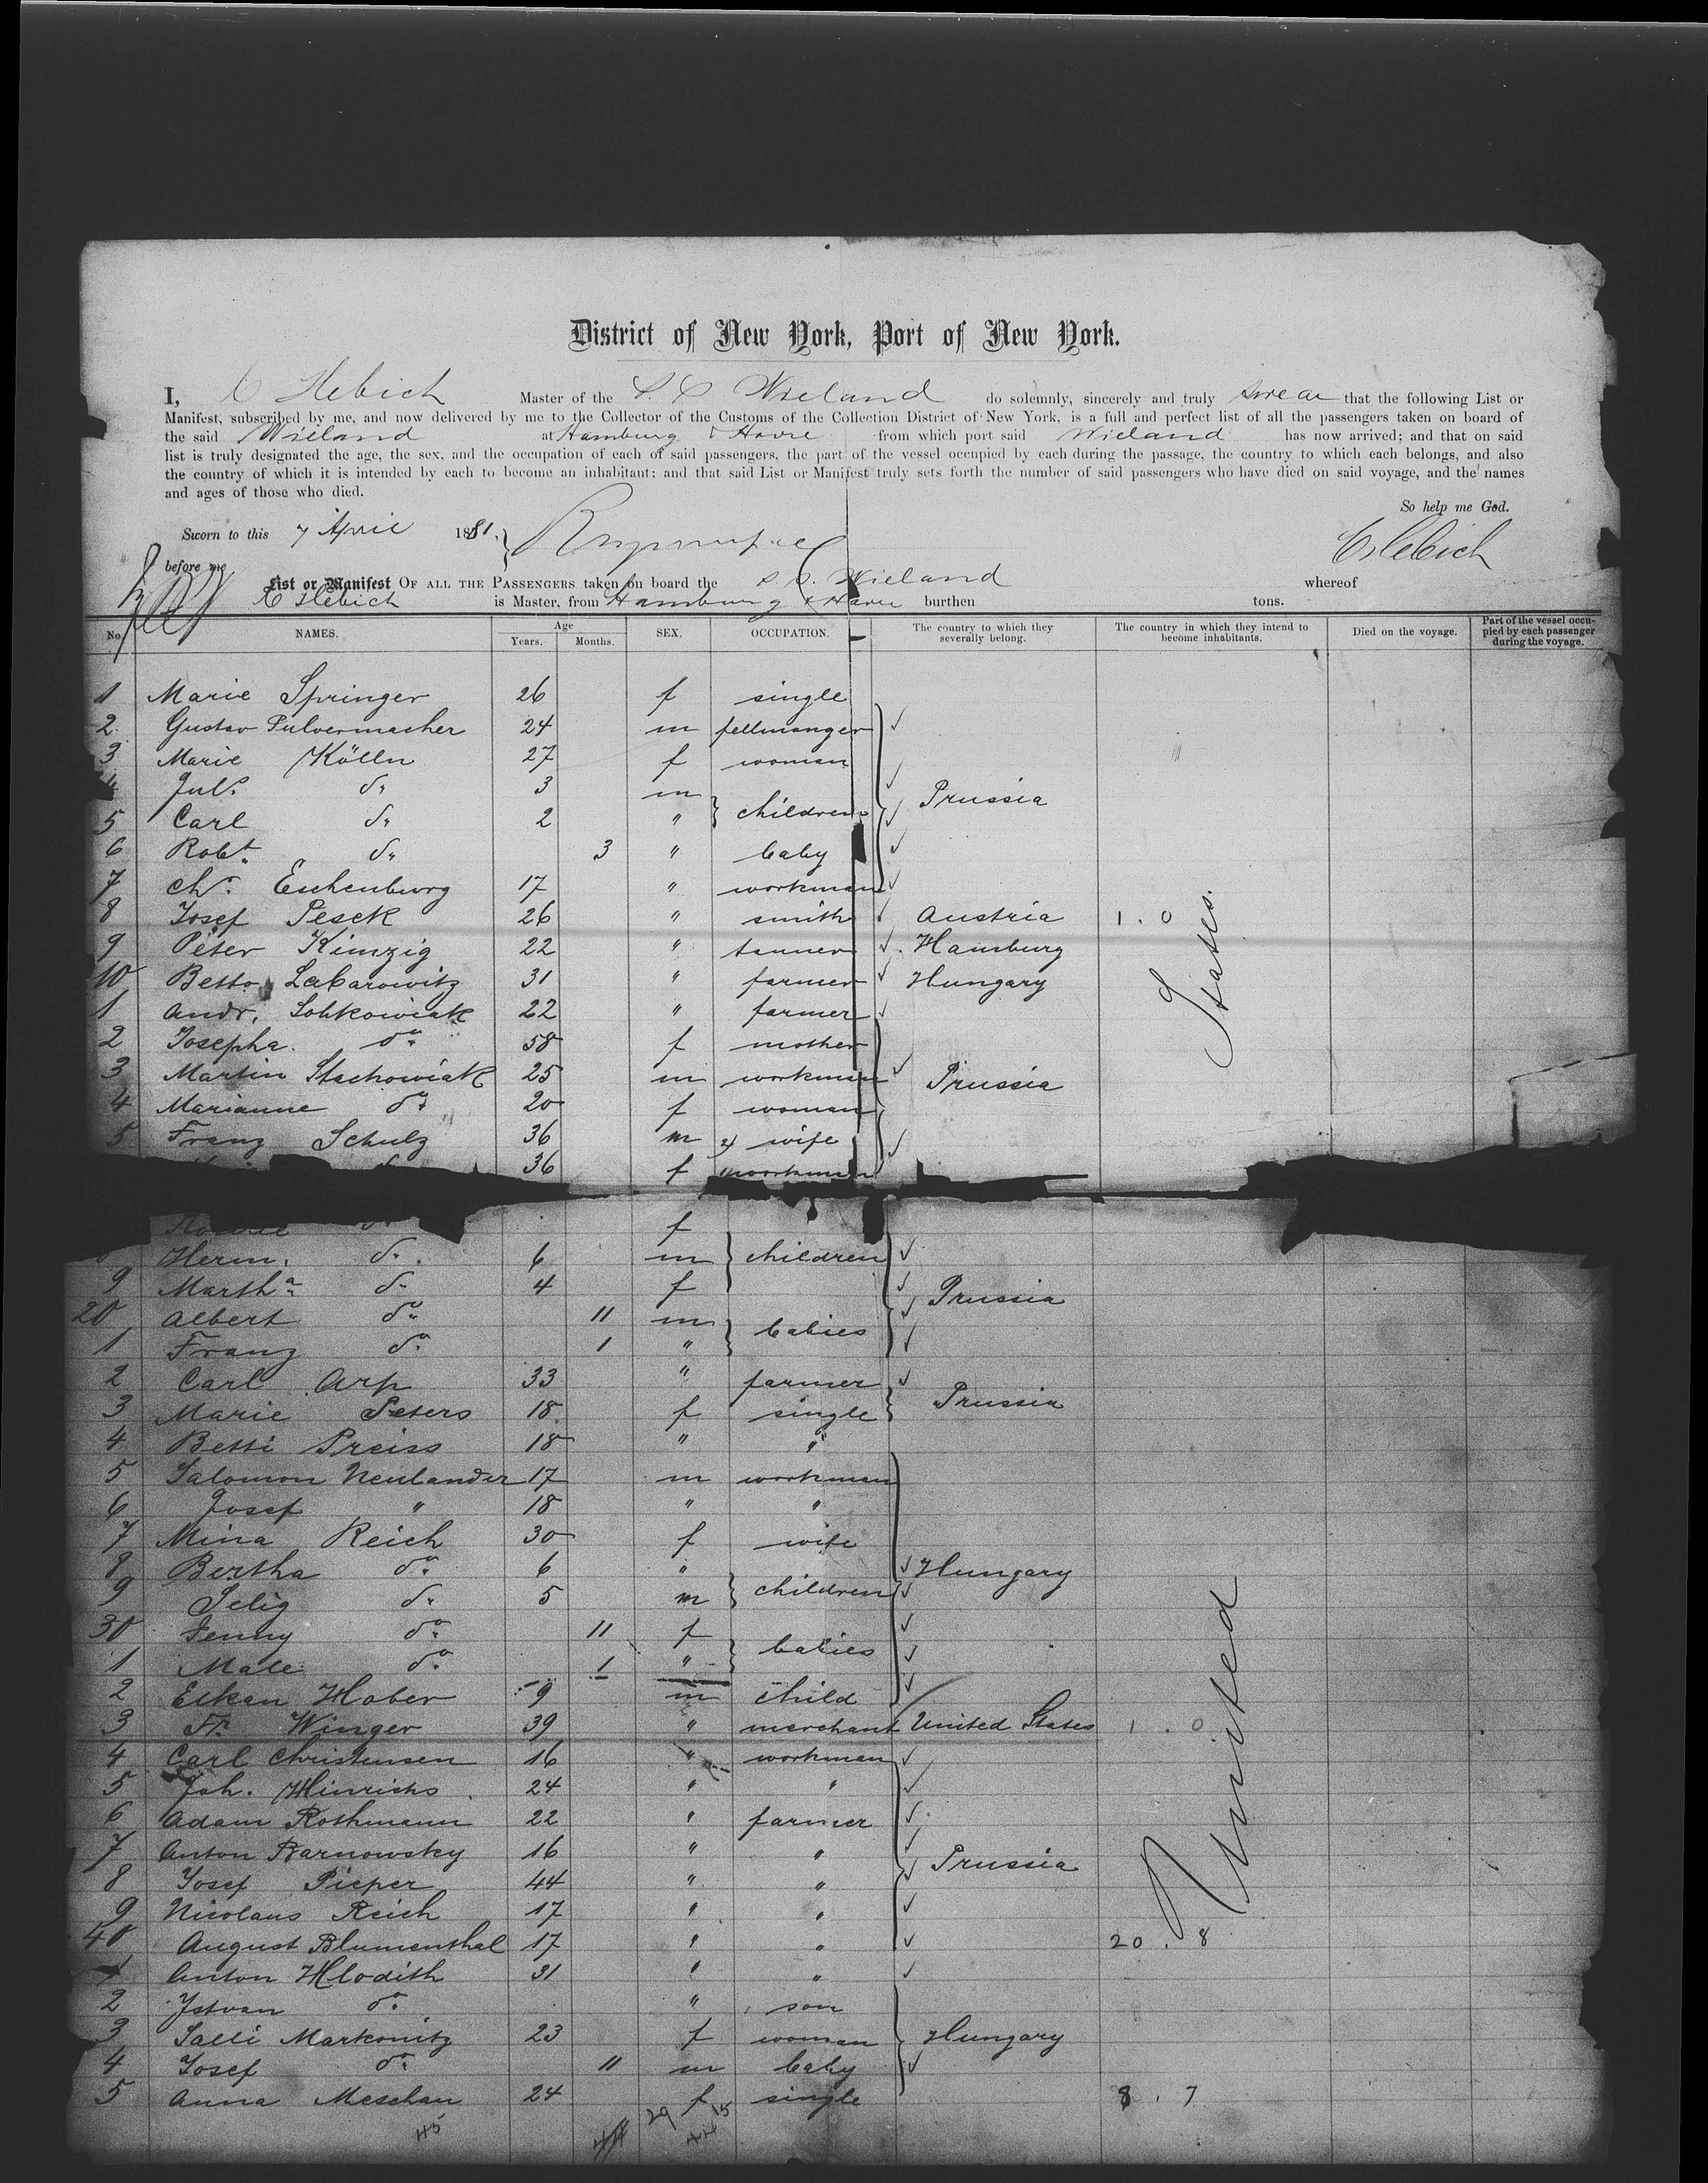 District of New York, Port of New York.
I, C Hebich Master of the S. S Wieland do solemnly, sincerely and truly swear that the following List or
Manifest, subscribed by me, and now delivered by me to the Collector of the Customs of the Collection District of New York, is a full and perfect list of all the passengers taken on board of
the said Wieland at Hamburg & Havre from which port said Wieland has now arrived; and that on said
list is truly designated the age, the sex, and the occupation of each of said passengers, the part of the vessel occupied by each during the passage, the country to which each belongs, and also
the country of which it is intended by each to become an inhabitant; and that said List or Manifest truly sets forth the number of said passengers who have died on said voyage, and the names
and ages of those who died.
So help me God.
Sworn to this 7 April 1881.
C Hebich
before me
List or Manifest OF ALL THE PASSENGERS taken on board the S. S. Wieland whereof
C Hebich is Master, from Hamburg & Havre burthen tons.
No. NAMES. Age Years. Months. SEX. OCCUPATION. The country to which they severally belong. The country in which they intend to become inhabitants. Died on the voyage. Part of the vessel occupied by each passenger during the voyage.
1 Marie Springer 26 f single
2 Gustav Pulvermacher 24 m fellmonger
3 Marie Kölln 27 f woman
Jul. do 3 m
Prussia
5 Carl do 2 " children
6 Robt. do 3 " baby
7 Chr. Eschenburg 17 " workman
8 Josef Pesek 26 " smith Austria 1. 0
9 Peter Kimzig 22 " tanner Hamburg
10 Betto Labarowitz 31 " farmer Hungary
1 Andr. Sobkowiak 22 " farmer
2 Josepha do 58 f mother
3 Martin Stachowiak 25 m workman Prussia
4 Marianne do 20 f woman
5 Franz Schulz 36 m wife
36 f workman
f
Herm. do 6 m children
9 Martha do 4 f Prussia
20 Albert do 11 m babies
1 Franz do 1 "
2 Carl Arp 33 " farmer
3 Marie Peters 18 f single Prussia
4 Betti Preiss 18 " "
5 Salomon Neulander 17 m workman
6 Josef " 18 " "
7 Mina Reich 30 f wife
8 Bertha do 6 " Hungary
9 Selig do 5 m children
30 Jenny do 11 f babies
1 Male do 1 "
2 Elkan Haber 9 m child
3 Fr. Winger 39 " merchant United States 1. 0
4 Carl Christensen 16 " workman
5 Joh. Hinrichs 24 " "
6 Adam Rothmann 22 " farmer
7 Anton Barnowsky 16 " "
8 Josef Pieper 44 " " Prussia
9 Nicolaus Reich 17 " "
40 August Blumenthal 17 " " 20. 8
1 Anton Hlodith 31 " "
2 Istvan do " son
3 Salli Markowitz 23 f woman Hungary
4 Josef do 11 m baby
5 Anna Meschan 24 f single 8. 7
United States
45 44 29 15
44